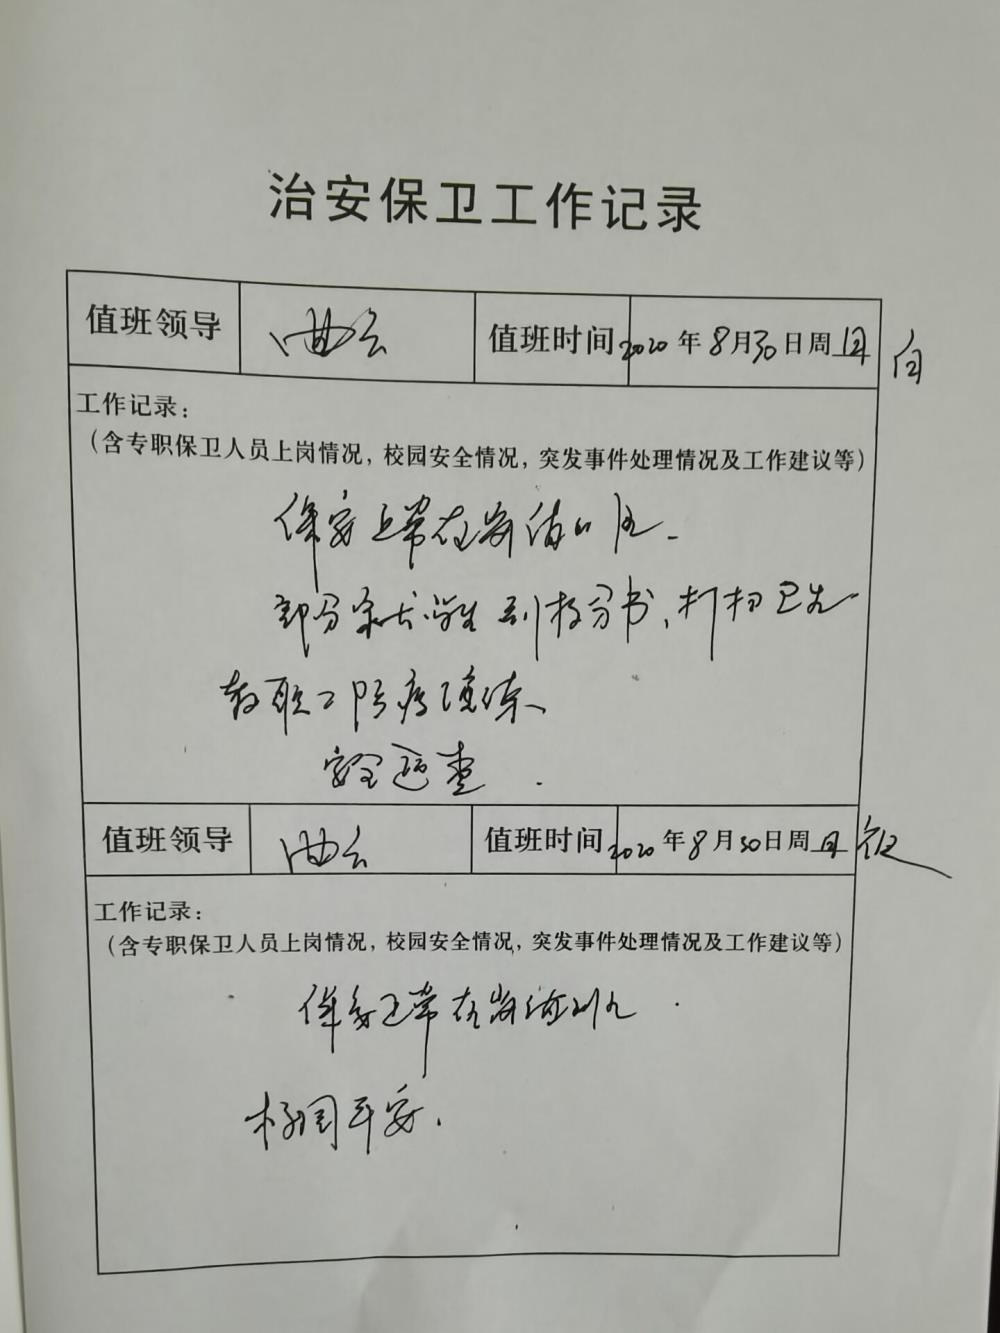 治安保卫工作记录
值班领导 曲云 值班时间 2020年8月30日周日 白
工作记录：
（含专职保卫人员上岗情况，校园安全情况，突发事件处理情况及工作建议等）
保安正常在岗值
部分 学生到校分书、打扫卫生
教职工防疫演练、
安全巡查.
值班领导 曲云 值班时间 2020年8月30日周日 夜
工作记录：
（含专职保卫人员上岗情况，校园安全情况，突发事件处理情况及工作建议等）
保安正常在岗值
校园平安.